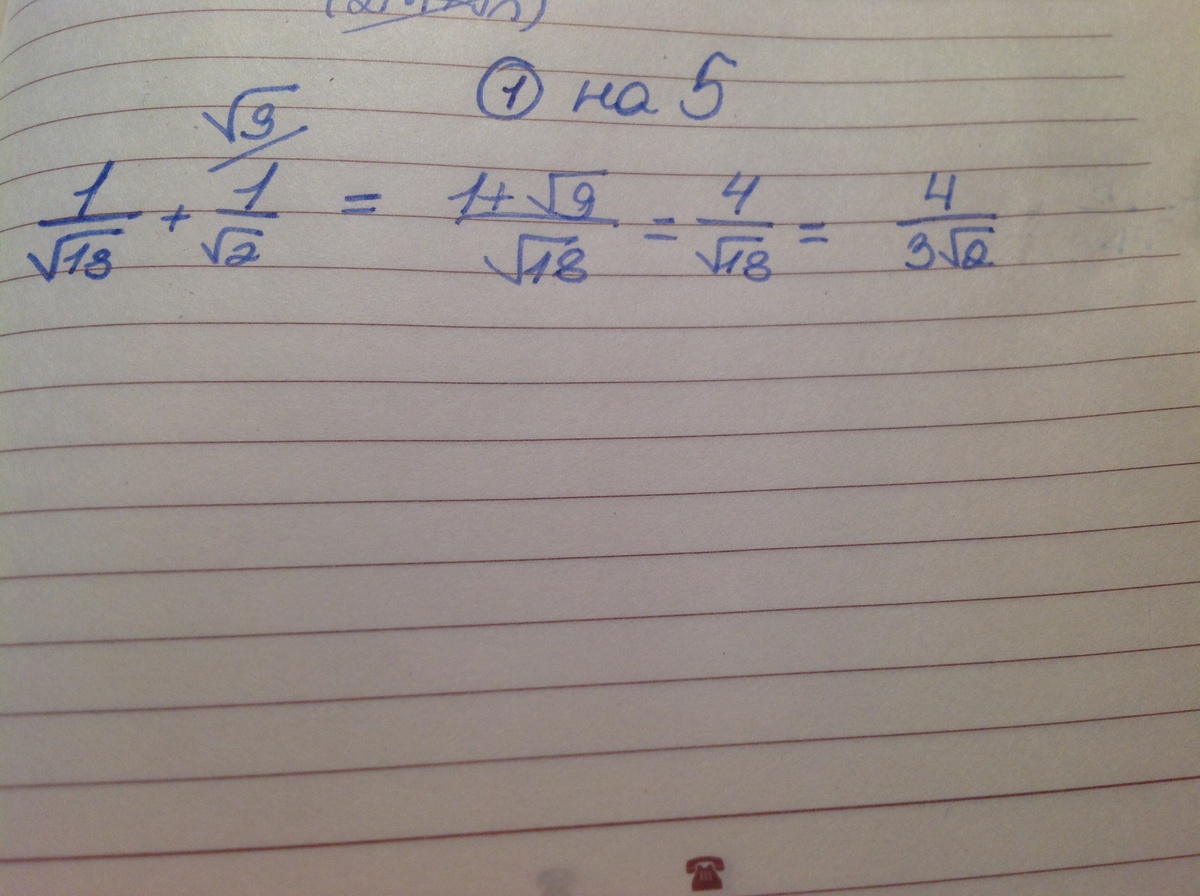 ① на 5
√9
1/√18 + 1/√2 = (1+√9)/√18 = 4/√18 = 4/(3√2)